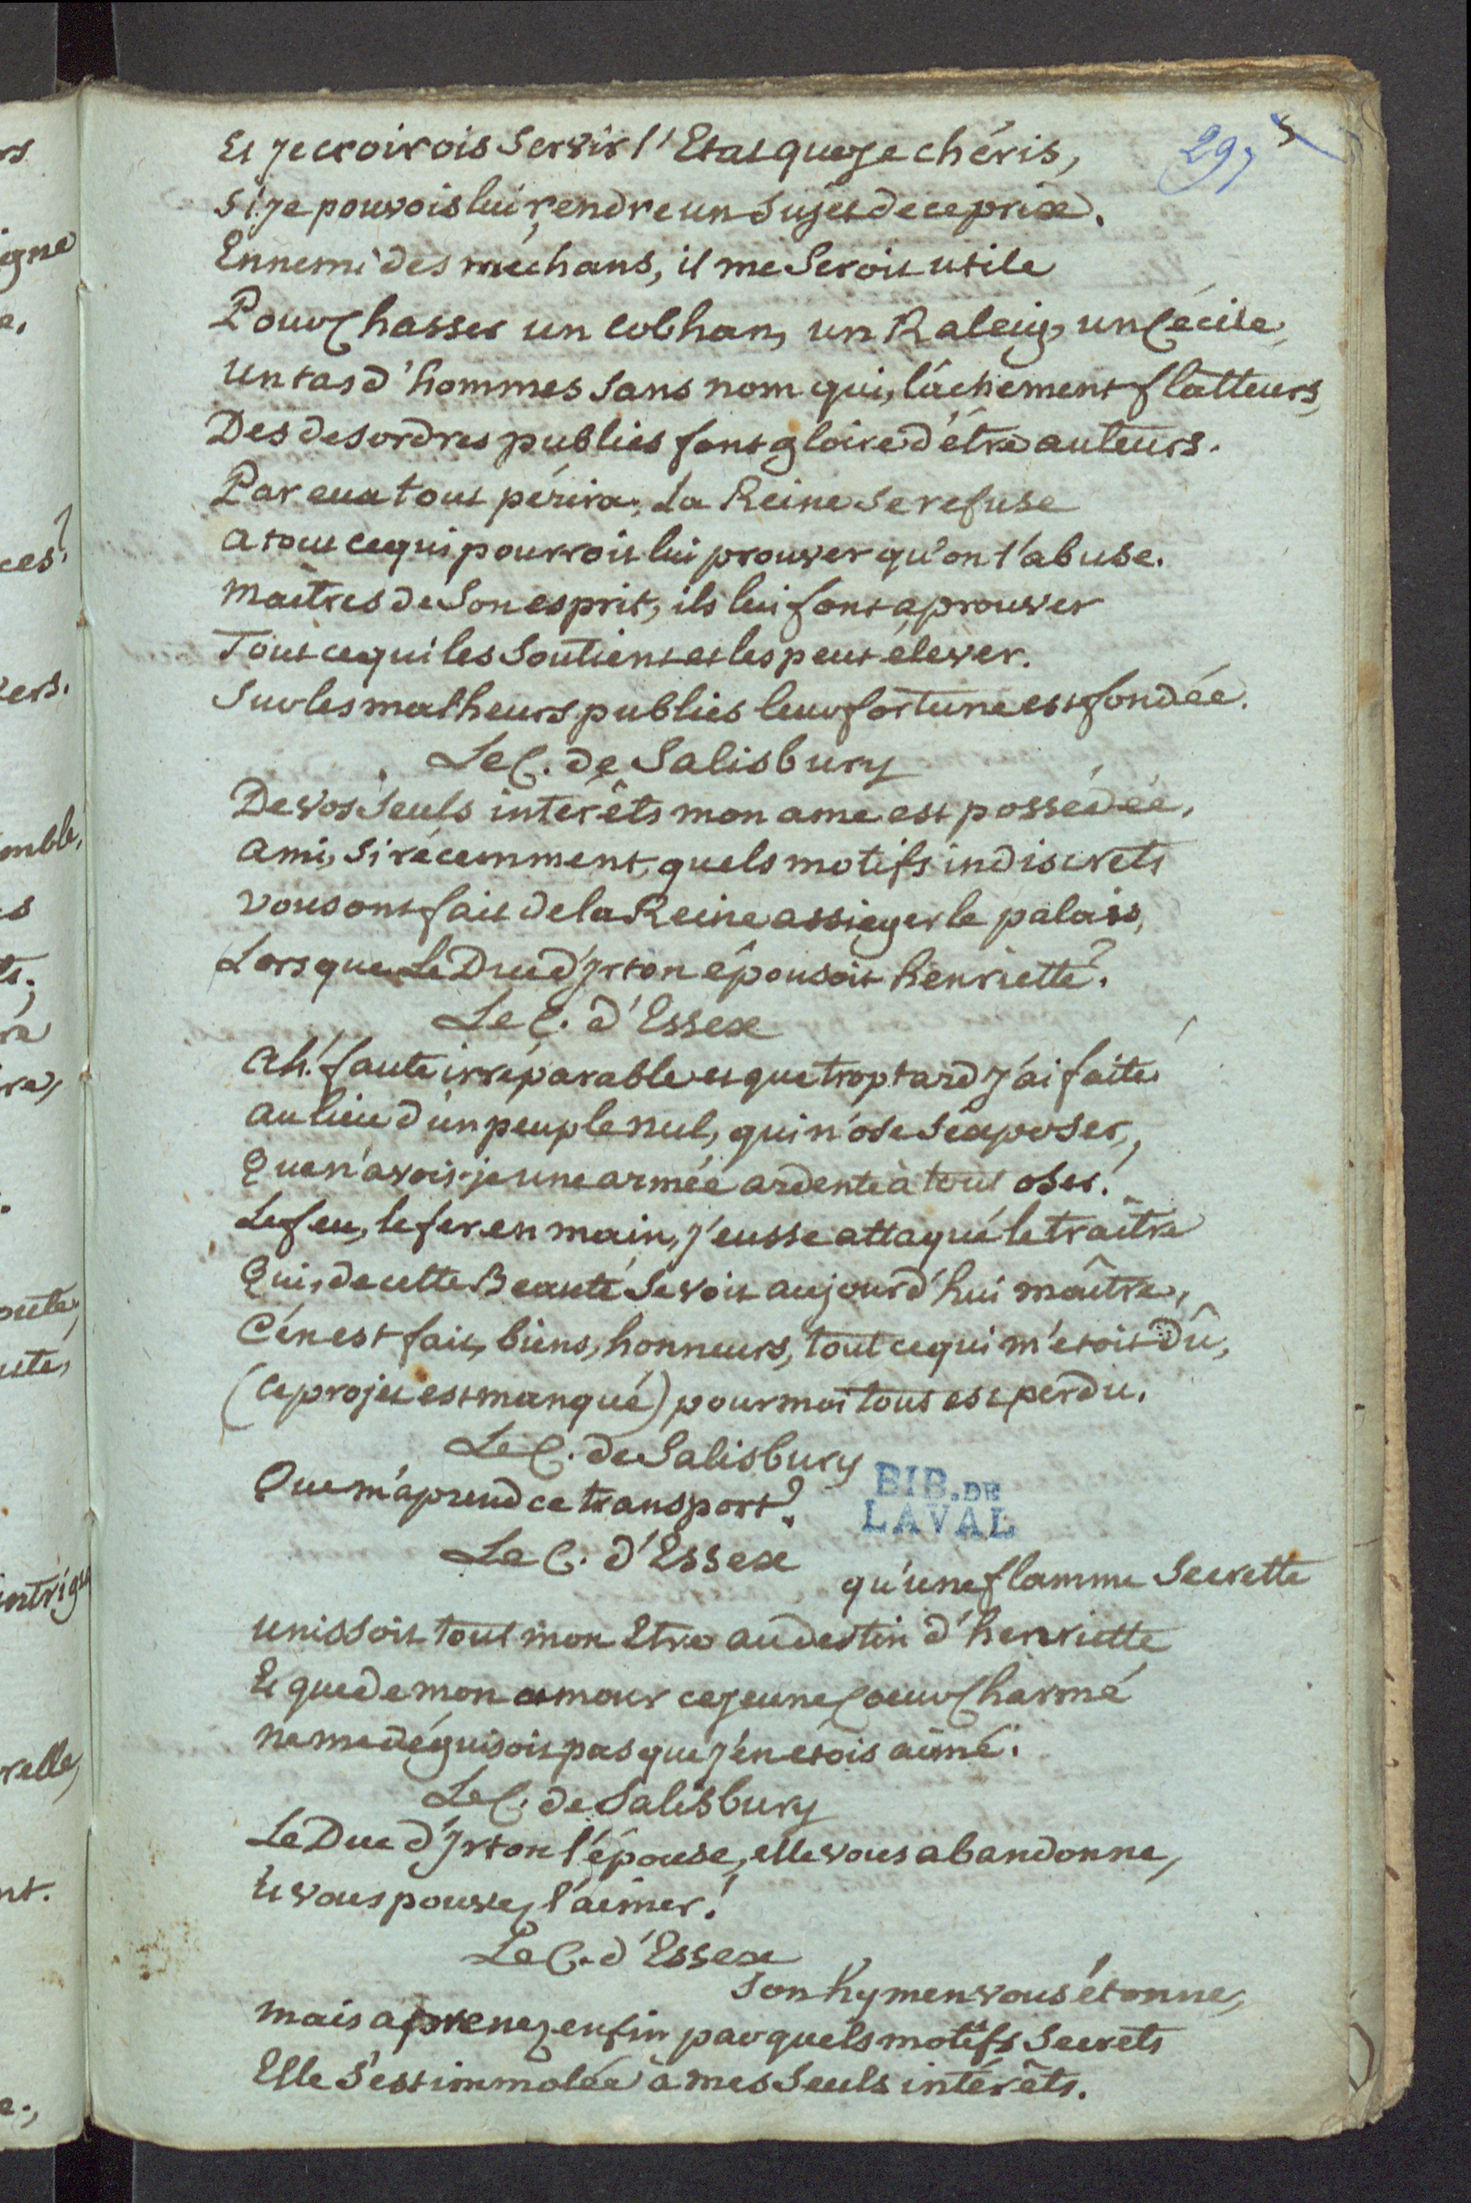 297
5
Et je croirois servir l'Etat que je chéris,
Si je pouvois lui rendre un sujet de ce prix.
Ennemi des méchans, il me seroit utile
Pour chasser un Cobhan, un Raleig, un Cécile,
Un tas d'hommes sans nom qui, lâchement flatteurs,
Des desordres publics font gloire d'être auteurs.
Par eux tout périra; La Reine se refuse
a tout ce qui pourroit lui prouver qu'on l'abuse.
maîtres de son esprit, ils lui font aprouver
Tout ce qui les soutient et les peut élever.
Sur les malheurs publics leur fortune est fondée.
Le C. de Salisbury
De vos seuls intérêts mon ame est possédée,
ami, si récemment, quels motifs indiscrets
vous ont fait de la Reine assieger le palais,
Lorsque Le Duc d'Irton épousoit henriette?
Le C. d'Essex
ah! faute irréparable et que trop tard j'ai faite
au lieu d'un peuple nul, qui n'ose s'exposer,
Que n'avois-je une armée ardente à tout oser!
Le feu, le fer en main, j'eusse attaqué le traître
Qui, de cette Beauté se voit aujourd'hui maître,
C'en est fait, biens, honneurs, tout ce qui m'etoit Dû,
(Ce projet est manqué) pour moi tout est perdu.
Le C. de Salisbury
Que m'aprend ce transport?
BIB. DE
LAVAL
Le C. d'Essex
qu'une flamme secrette
unissoit tout mon Etre au destin d'henriette
Et que de mon amour ce jeune Coeur Charmé
ne me déguisoit pas que j'en etois aimé.
Le C. de Salisbury
Le Duc d'Irton l'épouse, elle vous abandonne,
Et vous pouvez l'aimer!
Le C. d'Essex
Son hymen vous étonne,
mais aprenez enfin par quels motifs secrets
Elle s'est immolée à mes seuls intérêts.